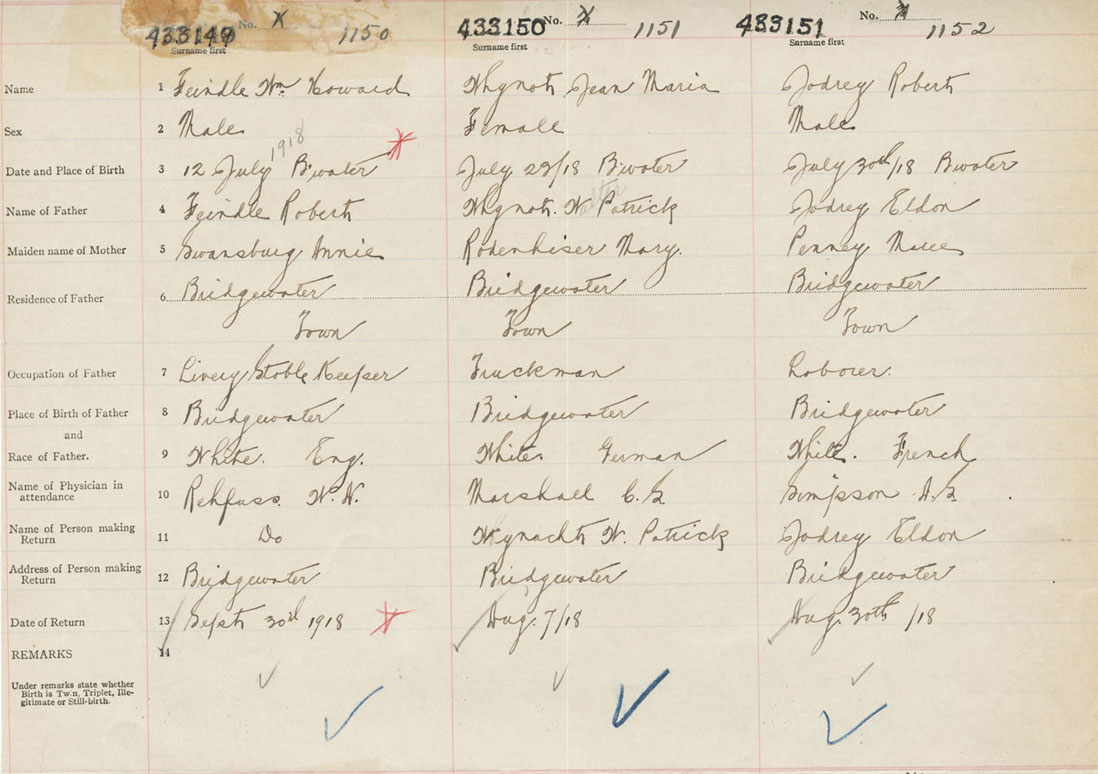 433149 No. 1150 433150 No. 1151 433151 No. 1152
Surname first Surname first Surname first
Name 1 Feindle Wm Howard Whynot Jean Maria Jodrey Robert
Sex 2 Male Female Male
1918
Date and Place of Birth 3 12 July B'water July 23/18 B'water July 30th/18 B'water
Name of Father 4 Feindle Robert Whynot. W Patrick Jodrey Eldon
Maiden name of Mother 5 Swansburg Annie Rodenhiser Mary. Penney
Residence of Father 6 Bridgewater Bridgewater Bridgewater
Town Town Town
Occupation of Father 7 Livery Stable Keeper Truckman Laborer.
Place of Birth of Father 8 Bridgewater Bridgewater Bridgewater
and
Race of Father. 9 White. Eng. White. German White. French
Name of Physician in
attendance 10 Rehfuss. W. N. Marshall C. S. Simpson A. S.
Name of Person making
Return 11 Do Wynacht W. Patrick Jodrey Eldon
Address of Person making
Return 12 Bridgewater Bridgewater Bridgewater
Date of Return 13 Sept 30th 1918 Aug. 7/18 Aug. 30th /18
REMARKS 14
Under remarks state whether
Birth is Twin, Triplet, Ille-
gitimate or Still-birth.